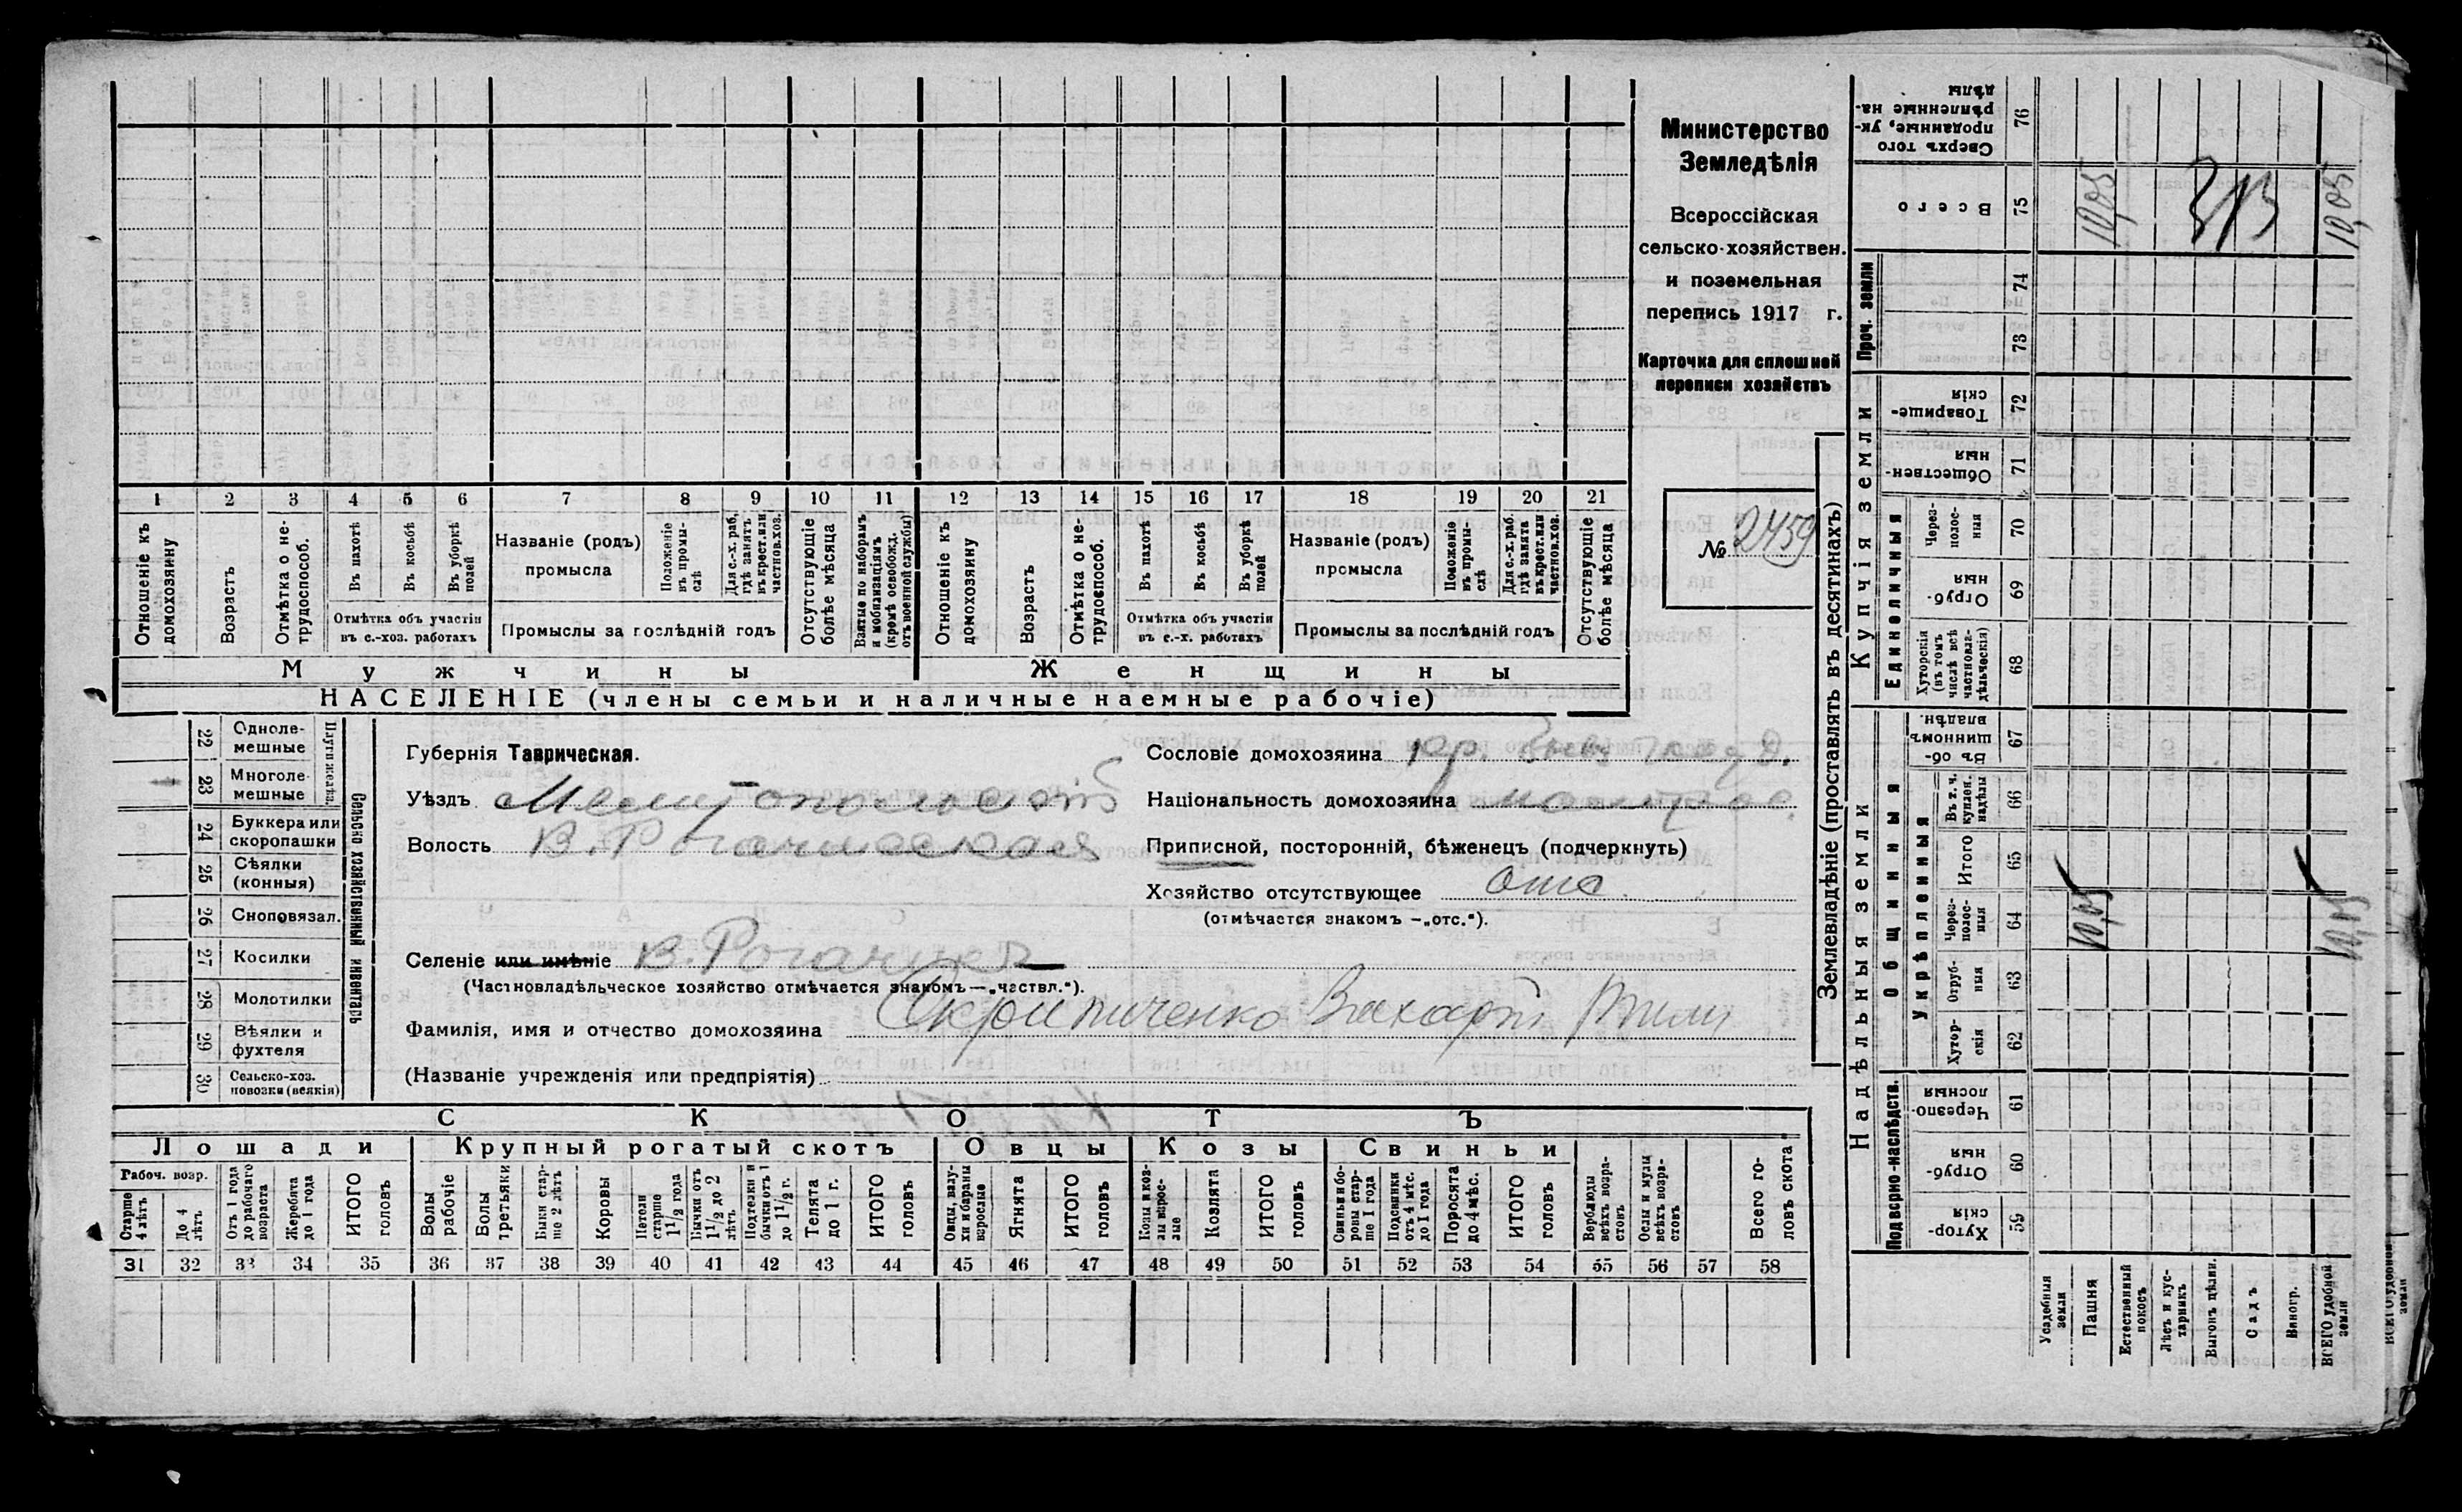 Министерство
Земледѣлія
Всероссійская
сельско-хозяйствен.
и поземельная
перепись 1917 г.
Карточка для сплошной
переписи хозяйствъ
№ 2459
1 2 3 4 5 6 7 8 9 10 11 12 13 14 15 16 17 18 19 20 21
Отношеніе къ домохозяину
Возрастъ
Отмѣтка о не-трудоспособ.
Въ пахотѣ
Въ косьбѣ
Въ уборкѣ полей
Отмѣтка объ участіи
въ с.-хоз. работахъ
Названіе (родъ)
промысла
Положеніе въ промы-слѣ
Для с.-х. раб, гдѣ занятъ въ крест. или частнов. хоз.
Промыслы за послѣдній годъ
Отсутствующіе болѣе мѣсяца
Взятые по наборамъ и мобилизаціямъ (кромѣ освобожд. отъ военной службы)
Отношеніе къ домохозяину
Возрастъ
Отмѣтка о не-трудоспособ.
Въ пахотѣ
Въ косьбѣ
Въ уборкѣ полей
Отмѣтка объ участіи
въ с.-х. работахъ
Названіе (родъ)
промысла
Положеніе въ промы-слѣ
Для с.-х. раб. гдѣ занята въ крест. или частнов. хоз.
Промыслы за послѣдній годъ
Отсутствующіе болѣе мѣсяца
Мужчины Женщины
НАСЕЛЕНІЕ (члены семьи и наличные наемные рабочіе)
Сельско хозяйственный инвентарь
Плуги желѣз.
22 Одноле-мешные
23 Многоле-мешные
24 Буккера или скоропашки
25 Сѣялки (конныя)
26 Сноповязал.
27 Косилки
28 Молотилки
29 Вѣялки и фухтеля
30 Сельско-хоз. повозки (всякія)
Губернія Таврическая.
Уѣздъ Мелитопольскій
Волость В. Рогачикская
Селеніе или имѣніе В. Рогачикъ
(Частновладѣльческое хозяйство отмѣчается знакомъ—„частвл.“).
Фамилія, имя и отчество домохозяина Скрипиченко Захарій
(Названіе учрежденія или предпріятія)
Сословіе домохозяина кр.
Національность домохозяина малорос.
Приписной, посторонній, бѣженецъ (подчеркнуть)
Хозяйство отсутствующее отс.
(отмѣчается знакомъ —„отс.“).
СКОТЪ
Лошади Крупный рогатый скотъ Овцы Козы Свиньи
Рабоч. возр.
Старше 4 лѣтъ
До 4 лѣтъ
Отъ 1 года до рабочаго возраста
Жеребята до 1 года
ИТОГО головъ
Волы рабочіе
Волы третьяки
Быки стар-ше 2 лѣтъ
Коровы
Нетели старше 1 1/2 года
Бычки отъ 1 1/2 до 2 лѣтъ
Подтелки и бычки отъ 1 до 1 1/2 г.
Телята до 1 г.
ИТОГО головъ
Овцы, валу-хи и бараны взрослые
Ягнята
ИТОГО головъ
Козы и коз-лы взрос-лые
Козлята
ИТОГО головъ
Свиньи и бо-ровы стар-ше 1 года
Подсвинки отъ 4 мѣс. до 1 года
Поросята до 4 мѣс.
ИТОГО головъ
Верблюды всѣхъ возра-стовъ
Ослы и мулы всѣхъ возра-стовъ
Всего го-ловъ скота
31 32 33 34 35 36 37 38 39 40 41 42 43 44 45 46 47 48 49 50 51 52 53 54 55 56 57 58
Землевладѣніе (проставлять въ десятинахъ)
Надѣльныя земли
Купчія земли
Проч. земли
Подворно-наслѣдств.
Общинныя
Укрѣпленныя
Единоличныя
Сверхъ того проданные, ук-рѣпленные на-дѣлы 76
Всего 75 10,05 10,05
74
73
Товарище-скія 72
Обществен-ныя 71
Через-полос-ныя 70
Отруб-ныя 69
Хуторскія (въ томъ числѣ всѣ частновла-дѣльческія) 68
Въ об-щинномъ владѣн. 67
Въ т. ч. куплен. надѣлы 66
Итого 65
Через-полос-ныя 64 10,05 10,05
Отруб-ныя 63
Хутор-скія 62
Черезпо-лосныя 61
Отруб-ныя 60
Хутор-скія 59
Усадебныя земли
Пашня
Естественный покосъ
Лѣсъ и кус-тарникъ
Выгонъ цѣлин.
Садъ
Виногр.
ВСЕГО удобной земли
ВСЕГО удобной земли